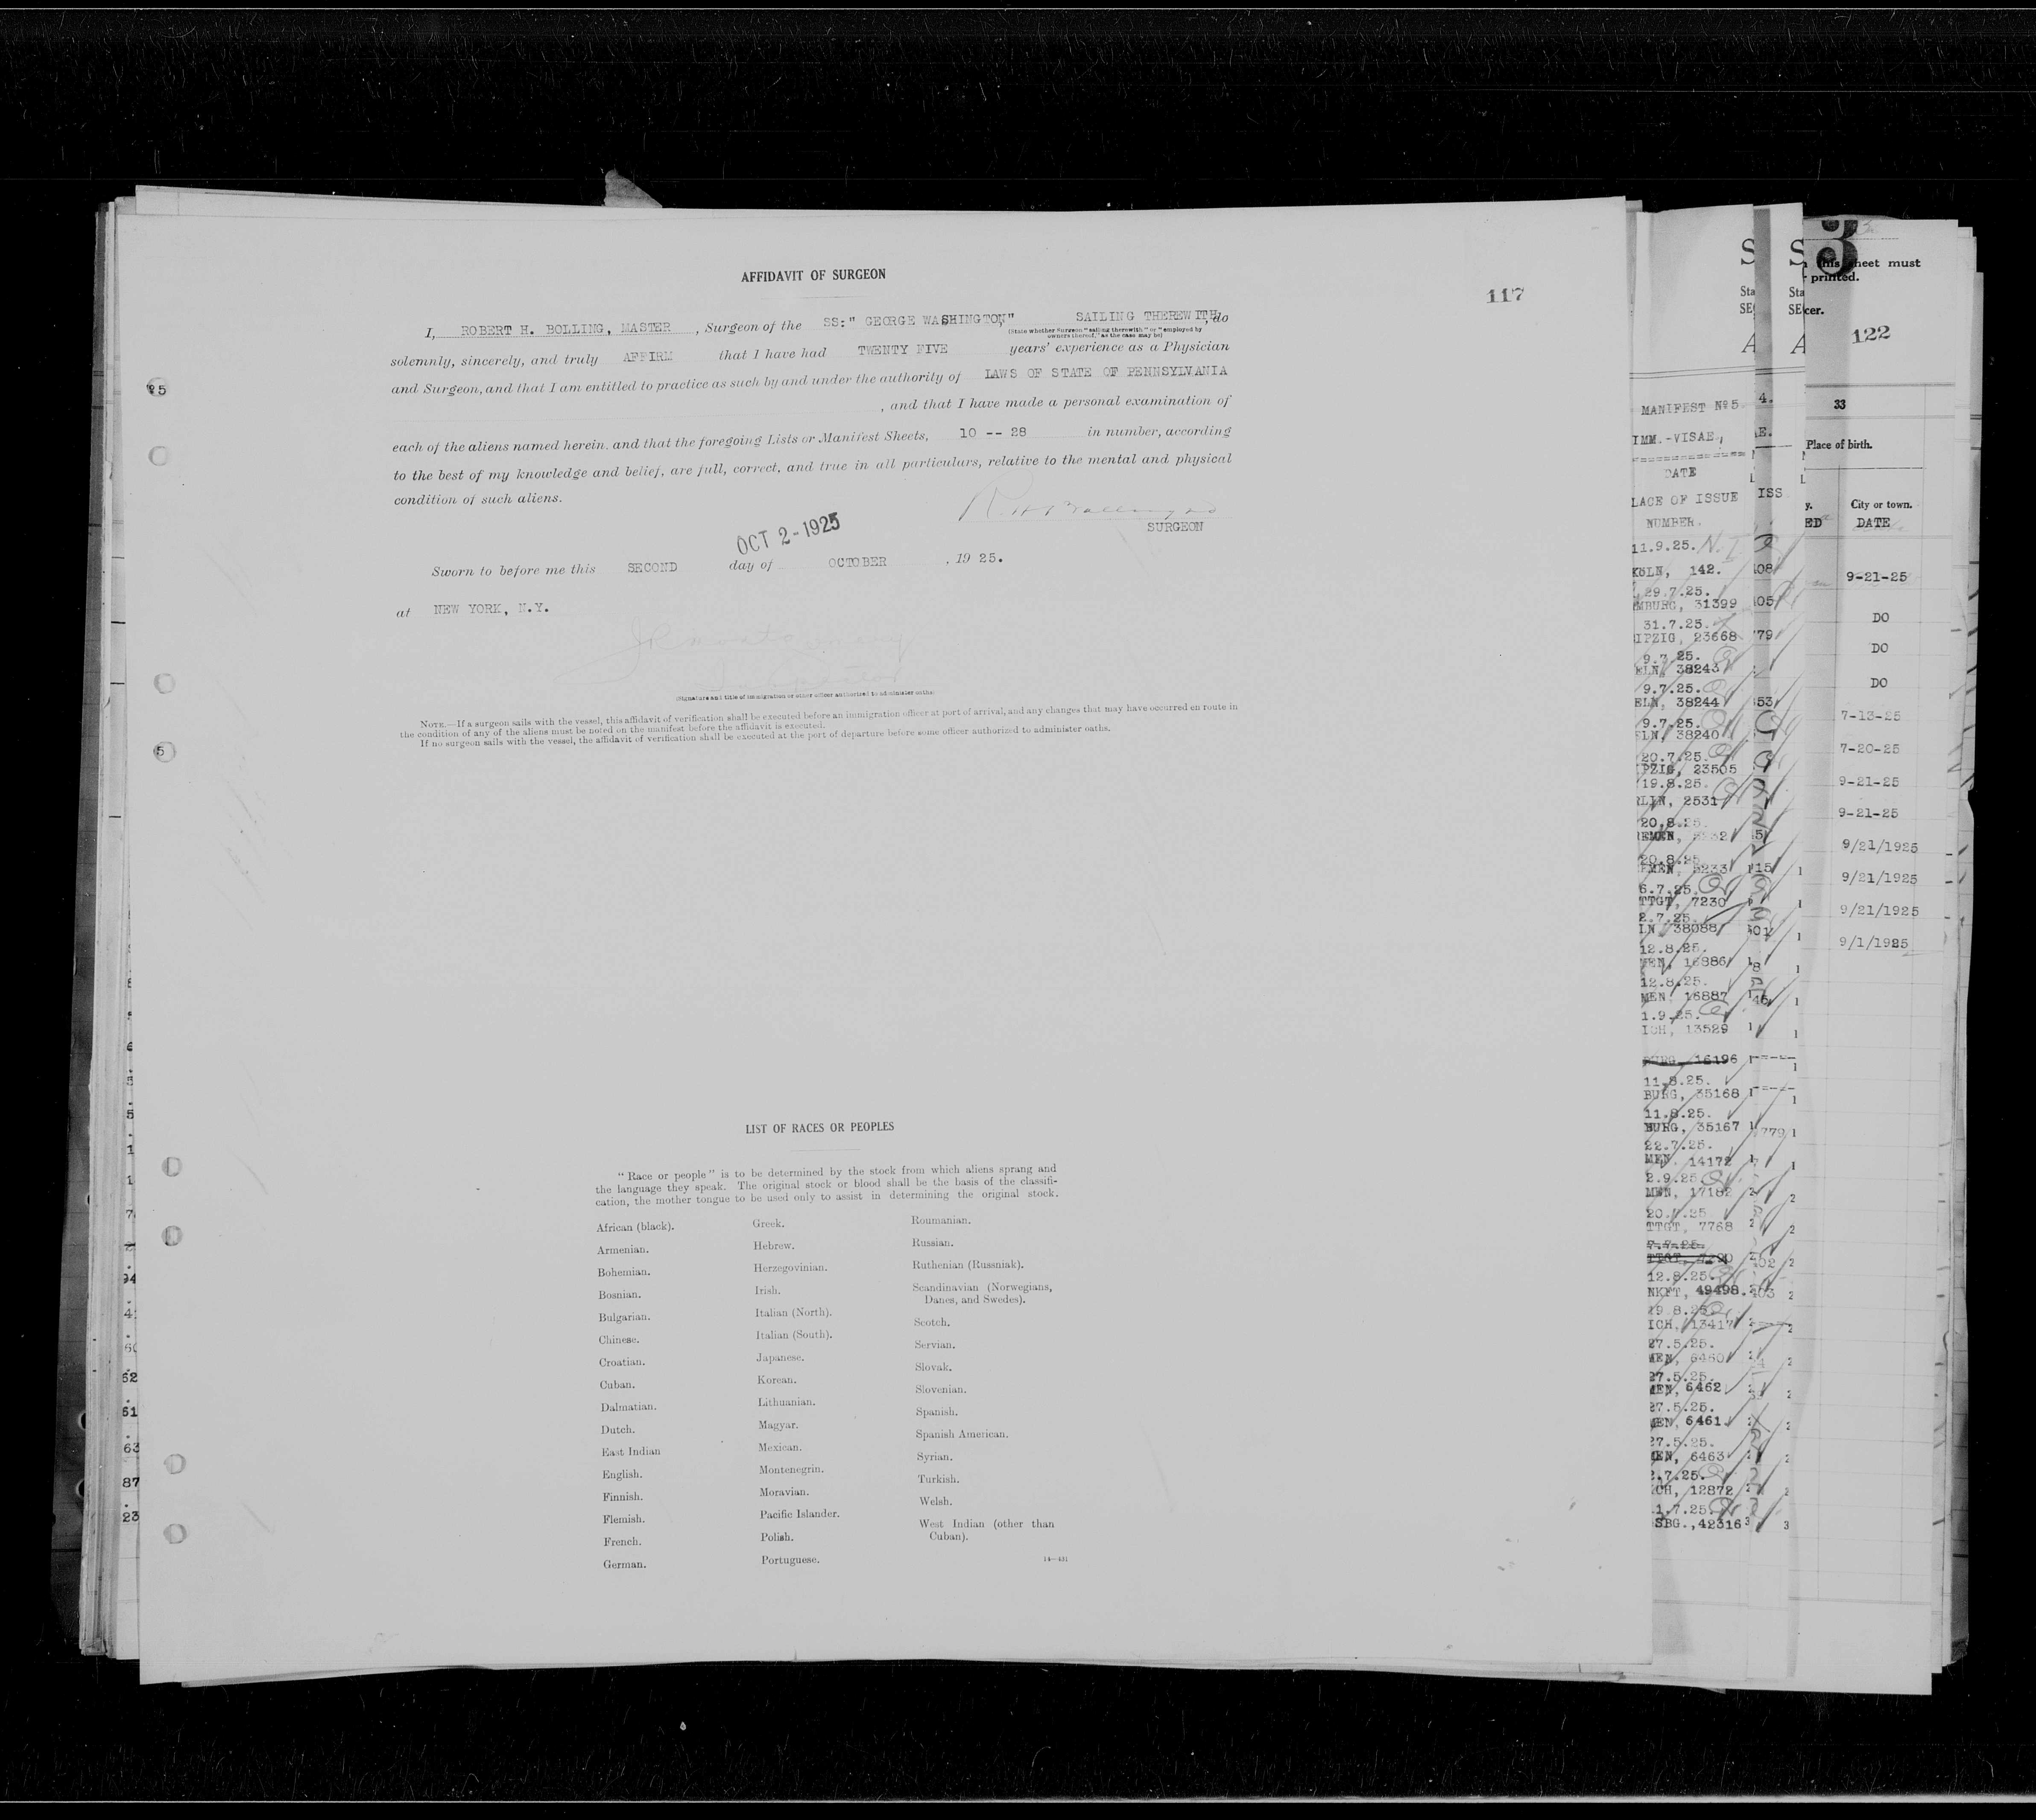 AFFIDAVIT OF SURGEON
117
I, ROBERT H. BOLLING, MASTER, Surgeon of the SS: " GEORGE WASHINGTON," SAILING THEREWITH, do
(State whether Surgeon "sailing therewith" or "employed by
owners thereof," as the case may be)
solemnly, sincerely, and truly AFFIRM that I have had TWENTY FIVE years' experience as a Physician
and Surgeon, and that I am entitled to practice as such by and under the authority of LAWS OF STATE OF PENNSYLVANIA
, and that I have made a personal examination of
each of the aliens named herein, and that the foregoing Lists or Manifest Sheets, 10 -- 28 in number, according
to the best of my knowledge and belief, are full, correct, and true in all particulars, relative to the mental and physical
condition of such aliens.
SURGEON
OCT 2-1925
Sworn to before me this SECOND day of OCTOBER, 19 25.
at NEW YORK, N.Y.
(Signature and title of immigration or other officer authorized to administer oaths)
NOTE.—If a surgeon sails with the vessel, this affidavit of verification shall be executed before an immigration officer at port of arrival, and any changes that may have occurred en route in
the condition of any of the aliens must be noted on the manifest before the affidavit is executed.
If no surgeon sails with the vessel, the affidavit of verification shall be executed at the port of departure before some officer authorized to administer oaths.
LIST OF RACES OR PEOPLES
"Race or people" is to be determined by the stock from which aliens sprang and
the language they speak. The original stock or blood shall be the basis of the classifi-
cation, the mother tongue to be used only to assist in determining the original stock.
African (black).
Armenian.
Bohemian.
Bosnian.
Bulgarian.
Chinese.
Croatian.
Cuban.
Dalmatian.
Dutch.
East Indian
English.
Finnish.
Flemish.
French.
German.
Greek.
Hebrew.
Herzegovinian.
Irish.
Italian (North).
Italian (South).
Japanese.
Korean.
Lithuanian.
Magyar.
Mexican.
Montenegrin.
Moravian.
Pacific Islander.
Polish.
Portuguese.
Roumanian.
Russian.
Ruthenian (Russniak).
Scandinavian (Norwegians,
Danes, and Swedes).
Scotch.
Servian.
Slovak.
Slovenian.
Spanish.
Spanish American.
Syrian.
Turkish.
Welsh.
West Indian (other than
Cuban).
14—431
MANIFEST Nº 5
IMM.-VISAE,
DATE
LACE OF ISSUE
NUMBER.
11.9.25.
KÖLN, 142.
29.7.25.
MBURG, 31399
31.7.25.
IPZIG, 23668
9.7.25.
ELN, 38243
9.7.25.
ELN, 38244
9.7.25.
ELN, 38240
20.7.25.
IPZIG, 23505
19.8.25.
RLIN, 2531
20.8.25.
EMEN,
20.8.25.
EMEN, 5233
6.7.25.
TTGT, 7230
2.7.25.
LN, 38088
12.8.25.
MEN, 16886
12.8.25.
MEN, 16887
1.9.25.
ICH, 13529
16196
11.8.25.
BURG, 35168
11.8.25.
BURG, 35167
22.7.25.
MEN, 14172
2.9.25.
MEN, 17182
20.7.25.
TTGT, 7768
7.7.25.
12.8.25.
NKFT, 49498.
19.8.25.
ICH, 13417
27.5.25.
MEN, 6460
27.5.25.
MEN, 6462
27.5.25.
MEN, 6461
27.5.25.
MEN, 6463
2.7.25.
ICH, 12872
1.7.25.
SBG., 42316
3
this sheet must
printed.
cer.
122
33
Place of birth.
City or town.
DATE
9-21-25
DO
DO
DO
7-13-25
7-20-25
9-21-25
9-21-25
9/21/1925
9/21/1925
9/21/1925
9/1/1925